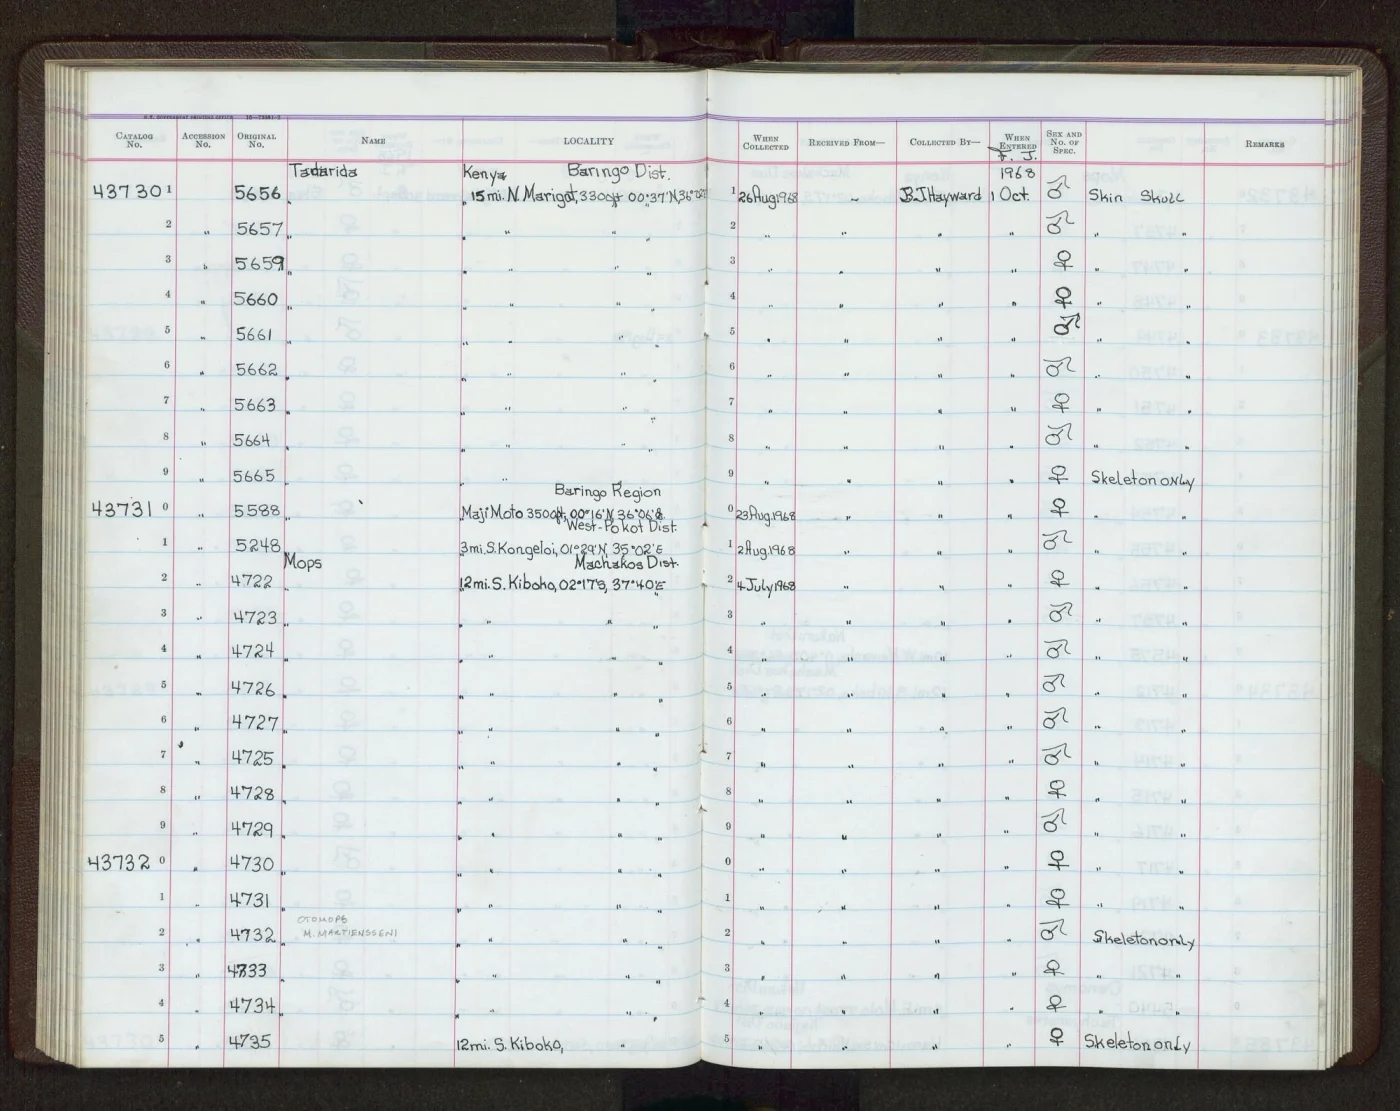 U.S. GOVERNMENT PRINTING OFFICE 16—73981-2
CATALOG No. ACCESSION No. ORIGINAL No. NAME LOCALITY WHEN COLLECTED RECEIVED FROM— COLLECTED BY— WHEN ENTERED SEX AND NO. OF SPEC. REMARKS
F. J.
Tadarida Kenya Baringo Dist. 1968
43730 1 5656 " " 15 mi. N. Marigat, 3300ft 00°37'N, 1 26 Aug 1968 ~ B.J Hayward 1 Oct. ♂ Skin Skull
2 " 5657 " " " " " 2 " " " " ♂ " "
3 " 5659 " " " " " 3 " " " " ♀ " "
4 " 5660 " " " " " 4 " " " " ♀ " "
5 " 5661 " " " " " 5 " " " " ♂ " "
6 " 5662 " " " " " 6 " " " " ♂ " "
7 " 5663 " " " " " 7 " " " " ♀ " "
8 " 5664 " " " " " 8 " " " " ♂ " "
9 " 5665 " " " 9 " " " " ♀ Skeleton only
Baringo Region
43731 0 " 5588 " " Maji Moto 3500ft, 00°16'N, 36°06'E 0 23 Aug. 1968 " " " ♀ " "
West-Pokot Dist.
1 " 5248 " 3 mi. S. Kongeloi, 01°29'N, 35°02'E 1 2 Aug. 1968 " " " ♂ " "
Mops Machakos Dist.
2 " 4722 " 12 mi. S. Kiboko, 02°17'S, 37°40'E 2 4 July 1968 " " " ♀ " "
3 " 4723 " " " " " 3 " " " " ♂ " "
4 " 4724 " " " " " 4 " " " " ♂ " "
5 " 4726 " " " " " 5 " " " " ♂ " "
6 " 4727 " " " " " 6 " " " " ♂ " "
7 " 4725 " " " " " 7 " " " " ♂ " "
8 " 4728 " " " " " 8 " " " " ♀ " "
9 " 4729 " " " " " 9 " " " " ♂ " "
43732 0 " 4730 " " " " " 0 " " " " ♀ " "
1 " 4731 " " " " " 1 " " " " ♀ " "
OTOMOPS
2 " 4732 M. MARTIENSSENI " " " " 2 " " " " ♂ Skeleton only
3 " 4733 " " " " 3 " " " " ♀ " "
4 " 4734 " " " " 4 " " " " ♀ " "
5 " 4735 12 mi. S. Kiboko, " 5 " " " " ♀ Skeleton only